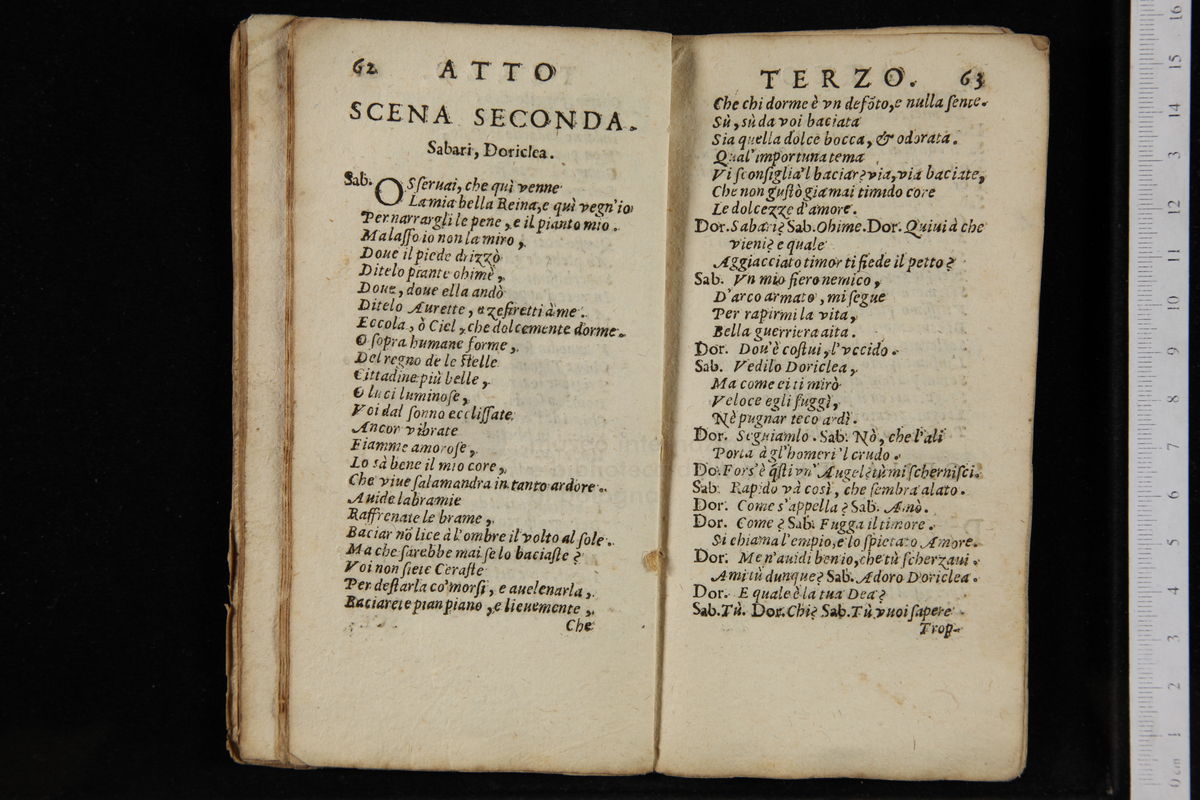 62 ATTO
SCENA SECONDA.
Sabari, Doriclea.
Sab. OSseruai, che quì venne
La mia bella Reina, e quì vegn'io
Per narrargli le pene, e il pianto mio.
Ma lasso io non la miro,
Doue il piede drizzò
Ditelo piante ohimè,
Doue, doue ella andò
Ditelo Aurette, e zefiretti à me.
Eccola, ò Ciel, che dolcemente dorme.
O sopra humane forme,
Del regno de le stelle
Cittadine più belle,
O luci luminose,
Voi dal sonno ecclissate
Ancor vibrate
Fiamme amorose,
Lo sà bene il mio core,
Che viue salamandra in tanto ardore.
Auide labra mie
Raffrenate le brame,
Baciar nõ lice à l'ombre il volto al sole.
Ma che sarebbe mai se lo baciaste?
Voi non siete Ceraste
Per destarla co' morsi, e auelenarla,
Baciarete pian piano, e lieuemente,
Che
TERZO. 63
Che chi dorme è vn defõto, e nulla sente.
Sù, sù da voi baciata
Sia quella dolce bocca, & odorata.
Qual' importuna tema
Vi sconsiglia'l baciar? via, via baciate,
Che non gustò giamai timido core
Le dolcezze d'amore.
Dor. Sabari? Sab. Ohime. Dor. Quiui à che
vieni? e quale
Aggiacciato timor ti fiede il petto?
Sab. Vn mio fiero nemico,
D'arco armato, mi segue
Per rapirmi la vita,
Bella guerriera aita.
Dor. Dou'è costui, l'vccido.
Sab. Vedilo Doriclea,
Ma come ei ti mirò
Veloce egli fuggì,
Nè pugnar teco ardì.
Dor. Seguiamlo. Sab. Nò, che l'ali
Porta à gl'homeri 'l crudo.
Do. Fors' è q̃sti vn' Augel? tù mi schernisci.
Sab. Rapido và così, che sembra alato.
Dor. Come s'appella? Sab. Amò.
Dor. Come? Sab. Fugga il timore.
Si chiama l'empio, e lo spietato Amore.
Dor. Me n'auidi ben io, che tù scherzaui.
Ami tù dunque? Sab. Adoro Doriclea.
Dor. E quale è la tua Dea?
Sab. Tù. Dor. Chi? Sab. Tù vuoi sapere
Trop-